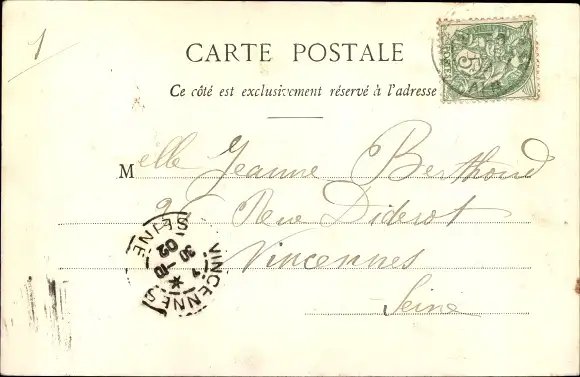 1
CARTE POSTALE
Ce côté est exclusivement réservé à l'adresse
Melle Jeanne Berthoud
26 Rue Diderot
Vincennes
Seine
VINCENNES
SEINE
30 -10
02